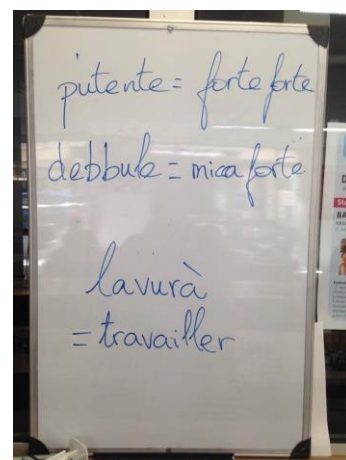 putente = forte forte
debbule = mica forte
lavurà
= travailler